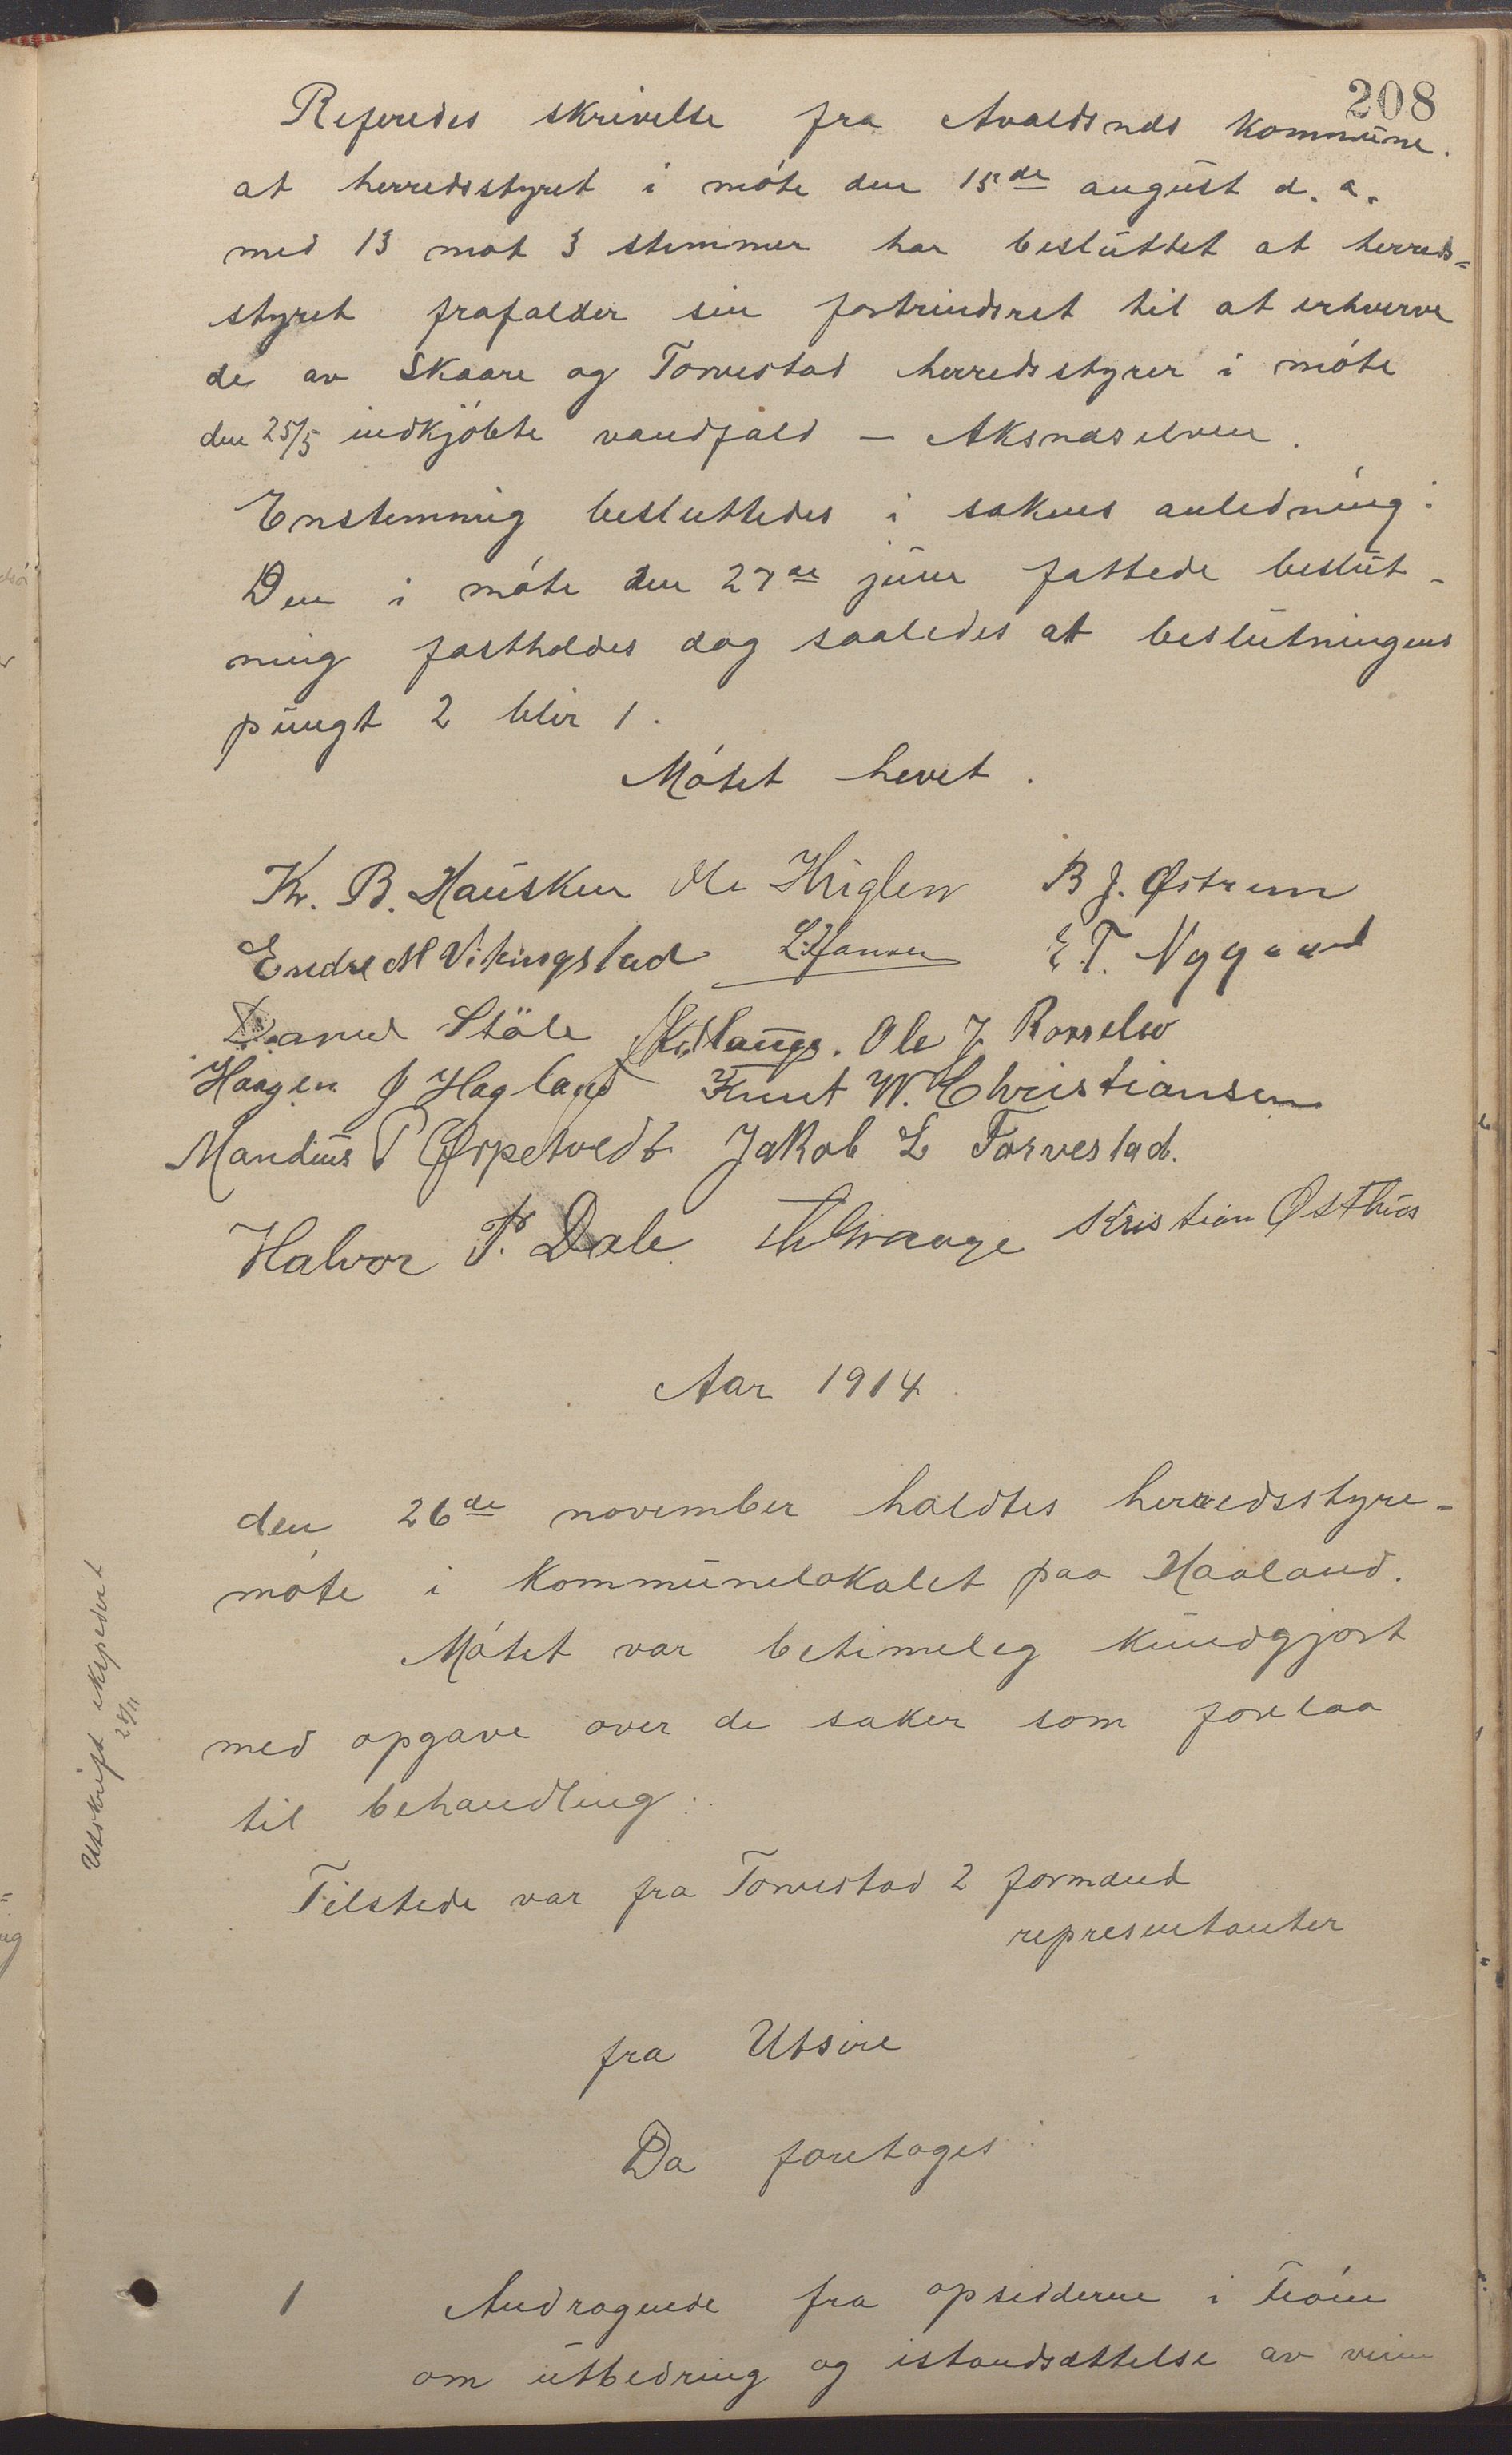 208
Refereredes skrivelse fra Avaldsnes kommune.
at herredsstyret i móte den 15de august d. a.
med 13 mot 3 stemmer har besluttet at herreds=
styret frafalder sin fortrindsret til at erhverve
de av Skaare og Torvestad herredsstyrer i móte
den 25/5 indkjöbte vandfald – Aksnæselven.
Enstemmig besluttedes i sakens anledning:
Den i móte den 27de juni fattede beslut-
ning fastholdes dog saaledes at beslutningens
pungt 2 blir 1.
Mótet hevet.
Kr. B. Hausken Ole Hüglen B J. Østrem
Endre M Vikingstad L. Hansen E. T. Nygaard
Daniel Stöle Kr. Haugs. Ole J.
Haagen J Hagland Knut W. Christiansen
Mandius P Ørpetvedt Jakob L Torvestad.
Halvor P. Dale Kristian Østhus
Aar 1914
den 26de november holdtes herredsstyre-
móte i kommunelokalet paa Haaland.
Mótet var betimeleg kundgjort
med opgave over de saker som forelaa
til behandling:
Utskrift ekspedert
28/11
Tilstede var fra Torvestad 2 formænd
representanter
fra Utsire
Da foretoges:
1 Andragende fra opsidderne i
om utbedring og istandsættelse av veien